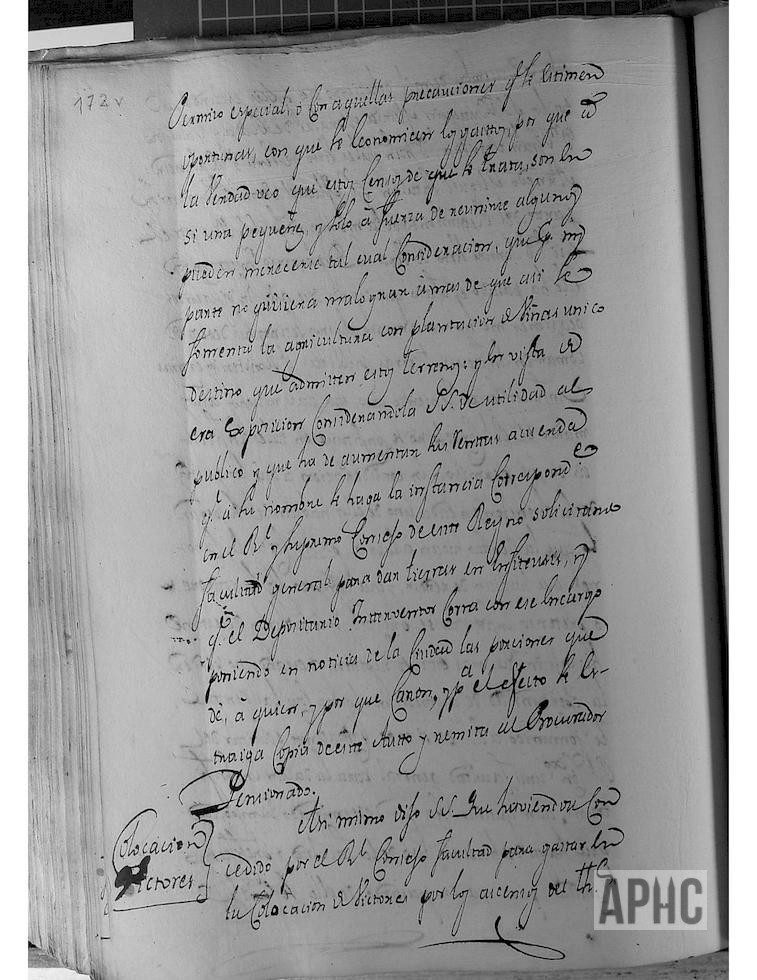 172v
Permiso especial, ó con aquellas precauciones q.e se estimen
oportunas, con que se economicen los gastos, por que â
la Verdad veo que estos Censos de que se trata, son en
si una pequeñez, y solo â fuerza de reunirse algunos
pueden merecerse tal cual Consideracion, que p.r mi
parte no quisiera malograr â mas de que asi se
fomenta la agricultura con plantacion de Viñas unico
destino que admiten estos terrenos: y en vista de
esta Exposicion Considerandola S.S. de utilidad al
publico y que ha de aumentar sus Rentas acuerda
q.e â su nombre se haga la instancia Correspond.e
en el R.l y Supremo Consejo de este Reyno solicitando
facultad general para dar tierras en Enfiteusis, y
q.e el Depositario Interventor Corra con ese encargo
poniendo en noticia de la Ciudad las porciones que
dè, â quien, y por que Canon, y p.a el efecto se ex-
traiga Copia de este Auto y remita al Procurador
Pensionado.
Colocacion
Victores
Asi mismo dijo S.S. Que haviendose Con
cedido por el R.l Consejo facultad para gastar en
la Colocacion de Victores por los ascensos del
APHC